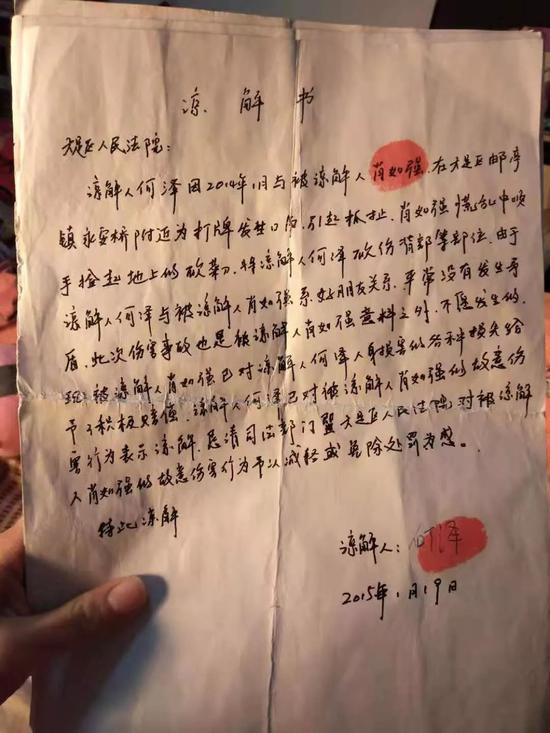 谅解书
大足区人民法院：
谅解人何泽因2014年1月与被谅解人肖如强，在大足区邮亭
镇永安桥附近为打牌发生口角，引起抓扯，肖如强慌乱中顺
手捡起地上的砍菜刀，将谅解人何泽砍伤背部等部位，由于
谅解人何泽与被谅解人肖如强系好朋友关系，平常没有发生矛
盾，此次伤害事故也是被谅解人肖如强意料之外，不愿发生的。
现被谅解人肖如强已对谅解人何泽人身损害的各种损失给
予了积极赔偿，谅解人何泽已对被谅解人肖如强的故意伤
害行为表示谅解，恳请司法部门暨大足区人民法院对被谅解
人肖如强的故意伤害行为予以减轻或免除处罚为感。
特此谅解
谅解人：何泽
2015年1月19日